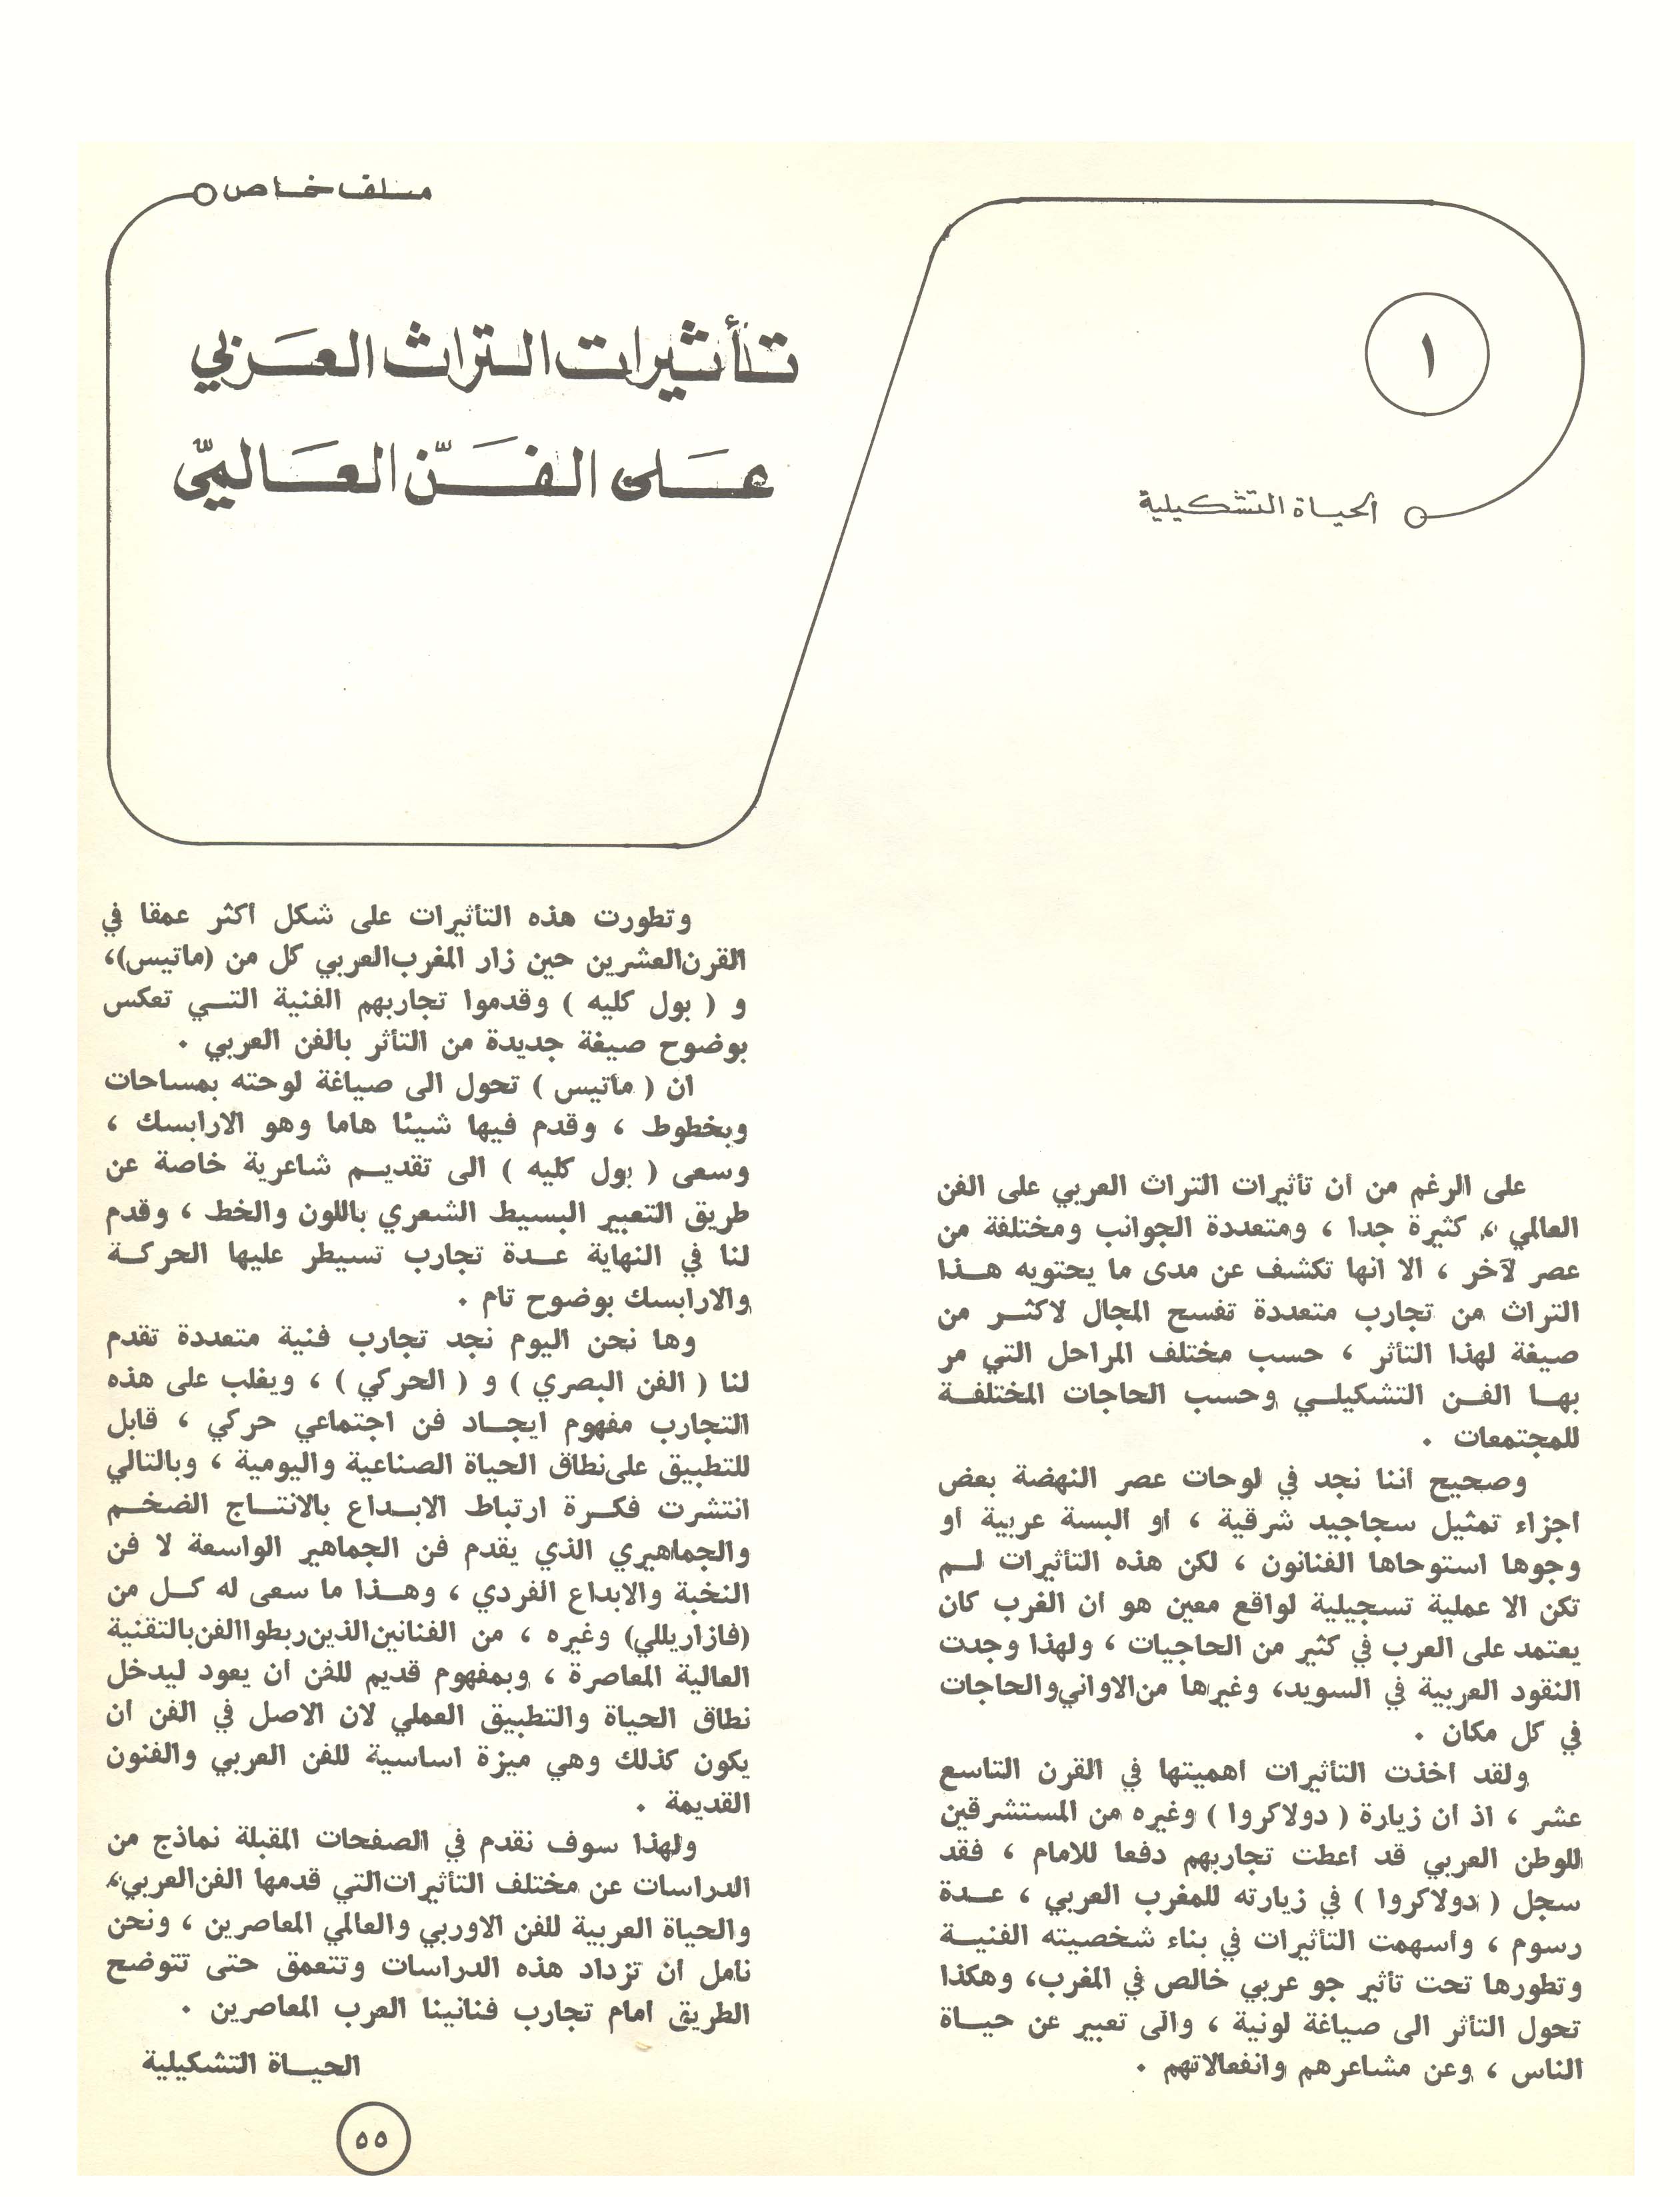 ملف خاص
١
تأثيرات التراث العربي
على الفنّ العالميّ
الحياة التشكيلية
على الرغم من أن تأثيرات التراث العربي على الفن
العالمي ، كثيرة جدا ، ومتعددة الجوانب ومختلفة من
عصر لآخر ، الا انها تكشف عن مدى ما يحتويه هذا
التراث من تجارب متعددة تفسح المجال لاكثر من
صيغة لهذا التأثر ، حسب مختلف المراحل التي مر
بها الفن التشكيلي وحسب الحاجات المختلفة
للمجتمعات .
وصحيح اننا نجد في لوحات عصر النهضة بعض
اجزاء تمثيل سجاجيد شرقية ، أو البسة عربية أو
وجوها استوحاها الفنانون ، لكن هذه التأثيرات لم
تكن الا عملية تسجيلية لواقع معين هو أن الغرب كان
يعتمد على العرب في كثير من الحاجيات ، ولهذا وجدت
النقود العربية في السويد، وغيرها من الاواني والحاجات
في كل مكان .
ولقد اخذت التأثيرات اهميتها في القرن التاسع
عشر ، اذ أن زيارة ( دولاكروا ) وغيره من المستشرقين
للوطن العربي قد أعطت تجاربهم دفعا للامام ، فقد
سجل ( دولاكروا ) في زيارته للمغرب العربي ، عدة
رسوم ، وأسهمت التأثيرات في بناء شخصيته الفنية
وتطورها تحت تأثير جو عربي خالص في المغرب، وهكذا
تحول التأثر الى صياغة لونية ، والى تعبير عن حياة
الناس ، وعن مشاعرهم وانفعالاتهم .
وتطورت هذه التأثيرات على شكل اكثر عمقا في
القرن العشرين حين زار المغرب العربي كل من (ماتيس)،
و ( بول كليه ) وقدموا تجاربهم الفنية التي تعكس
بوضوح صيغة جديدة من التأثر بالفن العربي .
ان ( ماتيس ) تحول الى صياغة لوحته بمساحات
وبخطوط ، وقدم فيها شيئا هاما وهو الارابسك ،
وسعى ( بول كليه ) الى تقديم شاعرية خاصة عن
طريق التعبير البسيط الشعري باللون والخط ، وقدم
لنا في النهاية عدة تجارب تسيطر عليها الحركة
والارابسك بوضوح تام .
وها نحن اليوم نجد تجارب فنية متعددة تقدم
لنا ( الفن البصري ) و ( الحركي ) ، ويغلب على هذه
التجارب مفهوم ايجاد فن اجتماعي حركي ، قابل
للتطبيق على نطاق الحياة الصناعية واليومية ، وبالتالي
انتشرت فكرة ارتباط الابداع بالانتاج الضخم
والجماهيري الذي يقدم فن الجماهير الواسعة لا فن
النخبة والابداع الفردي ، وهذا ما سعى له كل من
(فازاريللي) وغيره ، من الفنانين الذين ربطوا الفن بالتقنية
العالية المعاصرة ، وبمفهوم قديم للفن أن يعود ليدخل
نطاق الحياة والتطبيق العملي لان الاصل في الفن ان
يكون كذلك وهي ميزة اساسية للفن العربي والفنون
القديمة .
ولهذا سوف نقدم في الصفحات المقبلة نماذج من
الدراسات عن مختلف التأثيرات التي قدمها الفن العربي،
والحياة العربية للفن الاوربي والعالمي المعاصرين ، ونحن
نامل ان تزداد هذه الدراسات وتتعمق حتى تتوضح
الطريق امام تجارب فنانينا العرب المعاصرين .
الحياة التشكيلية
٥٥